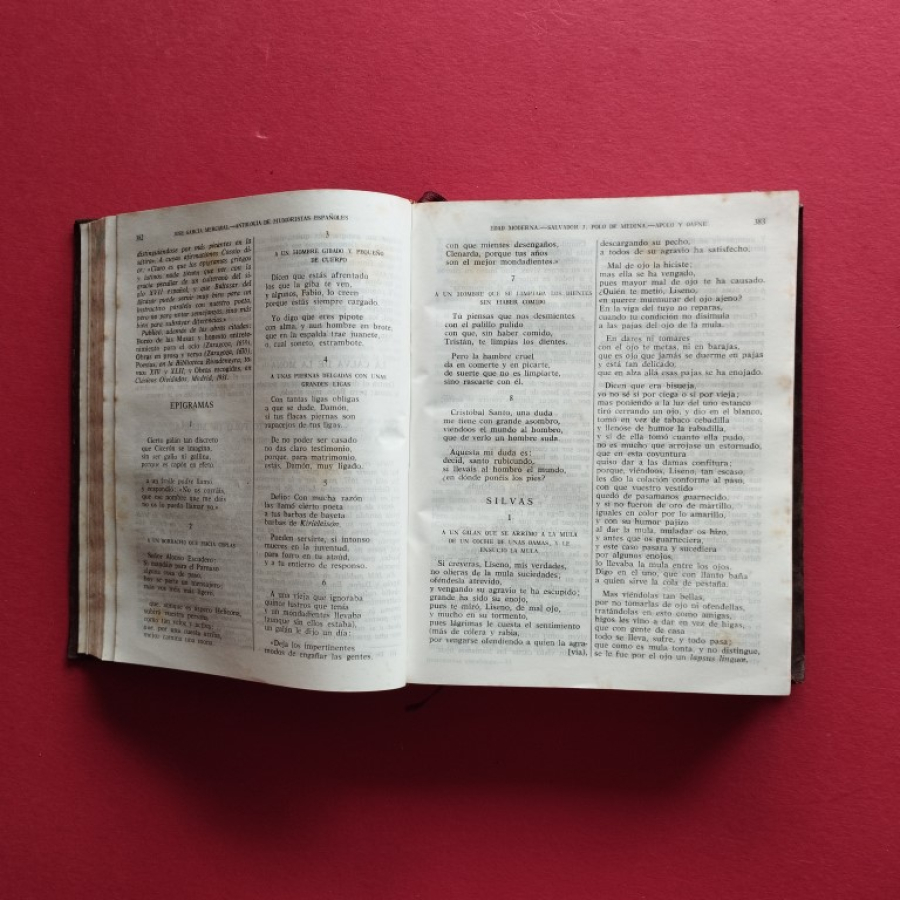 382 JOSÉ GARCÍA MERCADAL.—ANTOLOGÍA DE HUMORISTAS ESPAÑOLES
distinguiéndose por más picantes en la
sátira». A cuyas afirmaciones Cossío di-
ce: «Claro es que los epigramas griegos
y latinos nada tienen que ver con la
gracia peculiar de un cultismo del si-
glo XVII español, y que Baltasar del
Alcázar puede servir muy bien para un
instructivo paralelo con nuestro poeta,
pero no para notar semejanzas, sino más
bien para subrayar diferencias».
Publicó, además de las obras citadas:
Ocios de
miento para el ocio (Zaragoza, 1670),
Obras en prosa y verso (Zaragoza, 1670).
Poesías, en la Biblioteca Rivadeneyra, to-
mos XVI y XLII, y Obras escogidas, en
Clásicos Olvidados. Madrid, 1931.
EPIGRAMAS
1
Cierto galán tan discreto
que Cicerón se imagina,
sin ser gallo ni gallina,
porque es capón en efeto.
a un fraile padre llamó
y respondió: «No os corráis,
que ese nombre que me dais
no os lo puedo llamar yo.»
2
A UN BORRACHO QUE HACÍA COPLAS
Señor Alonso Escudero:
3
A UN HOMBRE GIBADO Y PEQUEÑO
DE CUERPO
Dicen que estás afrentado
los que la giba te ven,
y algunos, Fabio, lo creen
porque estás siempre cargado.
Yo digo que eres pipote
con alma, y aun hombre en brote,
que en la espalda trae juanete,
o, cual soneto, estrambote.
4
A UNAS PIERNAS DELGADAS CON UNAS
GRANDES LIGAS
Con tantas ligas obligas
a que se dude, Damón,
si tus flacas piernas son
zapacejos de tus ligas.
De no poder ser casado
no das claro testimonio,
porque, para matrimonio,
estás, Damón, muy ligado.
5
Delio: Con mucha razón
las llamó cierto poeta
a tus barbas de bayeta
barbas de Kirieleisón.
Pueden servirte, si intonso
mueres en la juventud,
para forro en tu ataúd,
y a tu entierro de responso.
6
A una vieja que ignoraba
quince lustros que tenía
y un mondadientes llevaba
(aunque sin ellos estaba),
un galán le dijo un día:
«Deja los impertinentes
modos de engañar las gentes,
EDAD MODERNA.—SALVADOR J. POLO DE MEDINA.—APOLO Y DAFNE 383
con que mientes desengaños,
Clenarda, porque tus años
son el mejor mondadientes.»
7
A UN HOMBRE QUE SE LIMPIABA LOS DIENTES
SIN HABER COMIDO
Tú piensas que nos desmientes
con el palillo pulido
con que, sin haber comido,
Tristán, te limpias los dientes.
Pero la hambre cruel
da en comerte y en picarte,
de suerte que no es limpiarte,
sino rascarte con él.
8
Cristóbal Santo, una duda
me tiene con grande asombro,
viéndoos el mundo al hombro,
que de verlo un hombre suda.
Aquesta mi duda es:
decid, santo rubicundo,
si lleváis al hombro el mundo,
¿en dónde ponéis los pies?
SILVAS
1
A UN GALÁN QUE SE ARRIMÓ A LA MULA
DE UN COCHE DE UNAS DAMAS, Y LE
ENSUCIÓ LA MULA
Si creyeras, Liseno, mis verdades,
no olieras de la mula suciedades;
ofendesla atrevido,
y vengando su agravio te ha escupido;
grande ha sido su enojo,
pues te miró, Liseno, de mal ojo,
y mucho en su tormento,
pues lágrimas le cuesta el sentimiento
(más de cólera y rabia,
por vengarse ofendiendo a quien la agra-
[via),
descargando su pecho,
a todos de su agravio ha satisfecho;
Mal de ojo la hiciste;
mas ella se ha vengado,
pues mayor mal de ojo te ha causado.
¿Quién te metió, Liseno,
en querer murmurar del ojo ajeno?
En la viga del tuyo no reparas,
cuando tu condición no disimula
a las pajas del ojo de la mula.
En dares ni tomares
con el ojo te metas, ni en barajas,
que es ojo que jamás se duerme en pajas
y está tan delicado,
que en alza allá esas pajas se ha enojado.
Dicen que era bisoja,
yo no sé si por ciega o si por vieja;
mas poniendo a la luz del uno estanco
tiró cerrando un ojo, y dio en el blanco,
tomó en vez de tabaco cebadilla
y llenóse de humor la rabadilla,
y si de ella tomó cuanto ella pudo,
no es mucho que arrojase un estornudo,
que en esta coyuntura
quiso dar a las damas confitura;
porque, viéndoos, Liseno, tan escaso,
les dio la colación conforme al paso,
con que vuestro vestido
quedó de pasamanos guarnecido,
y si no fueron de oro de martillo,
iguales en color lo amarillo,
y con su humor pajizo
al dar la mula, muladar os hizo,
y antes que os guarneciera,
y este caso pasara y sucediera
por algunos enojos,
lo llevaba la mula entre los ojos.
Digo en el uno, que con llanto baña
a quien sirve la cola de pestaña.
Mas viéndolas tan bellas,
por no tomarlas de ojo ni ofendellas,
tratándolas en esto como amigas,
higos les vino a dar en vez de higas,
que con gente de casa
todo se lleva, sufre, y todo pasa;
que como es mula tonta, y no distingue,
se le fue por el ojo un lapsus lingue,